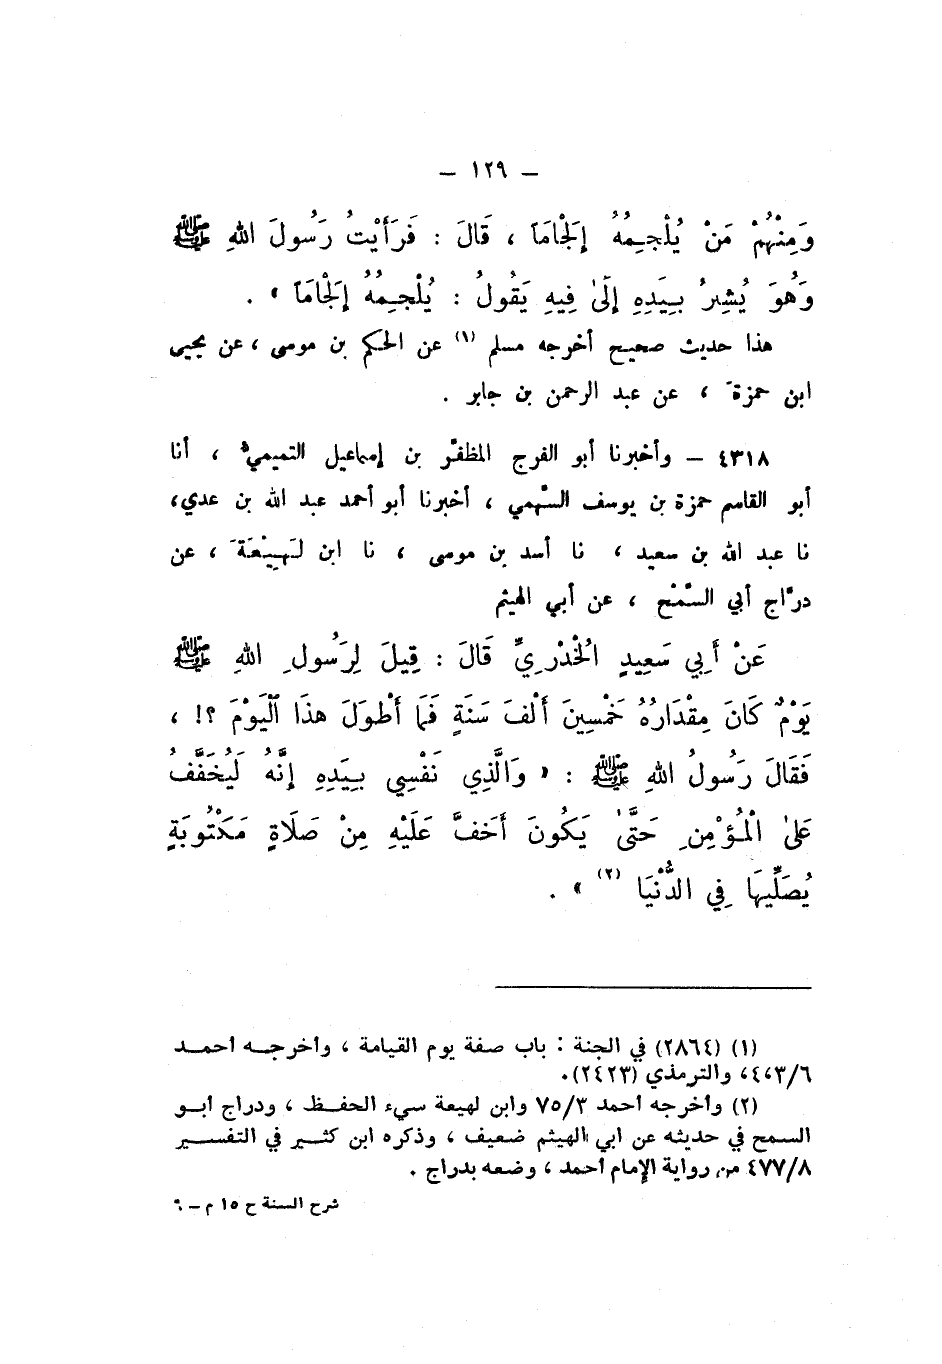 — ١٢٩ —
وَمِنْهُمْ مَنْ يُلْجِمُهُ إِلْجَامَاً ، قَالَ : فَرَأَيْتُ رَسُولَ اللهِ ﷺ
وَهُوَ يُشِيرُ بِيَدِهِ إِلَىٰ فِيهِ يَقُولُ : يُلْجِمُهُ إِلْجَامَاً » .
هذا حديث صحيح أخرجه مسلم (١) عن الحكم بن موسى ، عن يحيى
ابن حمزةَ ، عن عبد الرحمن بن جابر .
٤٣١٨ – وأخبرنا أبو الفرج المظفّر بن إسماعيل التميميّ ، أنا
أبو القاسم حمزة بن يوسف السَّهمي ، أخبرنا أبو أحمد عبد الله بن عدي،
نا عبد الله بن سعيد ، نا أسد بن موسى ، نا ابن لَهِيْعَةَ ، عن
درّاج أبي السَّمْح ، عن أبي الهيثم
عَنْ أَبِي سَعِيدٍ الْخُدْرِيِّ قَالَ : قِيلَ لِرَسُولِ اللهِ ﷺ
يَوْمٌ كَانَ مِقْدَارُهُ خَمْسِينَ أَلْفَ سَنَةٍ فَمَا أَطْوَلَ هذَا الْيَوْمَ ؟! ،
فَقَالَ رَسُولُ اللهِ ﷺ : « وَالَّذِي نَفْسِي بِيَدِهِ إِنَّهُ لَيُخَفَّفُ
عَلىٰ الْمُؤْمِنِ حَتَّىٰ يَكُونَ أَخَفَّ عَلَيْهِ مِنْ صَلَاةٍ مَكْتُوبَةٍ
يُصَلِّيهَا فِي الدُّنْيَا (٢) » .
(١) (٢٨٦٤) في الجنة : باب صفة يوم القيامة ، وأخرجه أحمد
٤،٣/٦، والترمذي (٢٤٢٣).
(٢) وأخرجه أحمد ٧٥/٣ وابن لهيعة سيء الحفظ ، ودراج أبو
السمح في حديثه عن ابي الهيثم ضعيف ، وذكره ابن كثير في التفسير
٤٧٧/٨ من رواية الإمام أحمد ، وضعه بدراج .
شرح السنة ج ١٥ م – ٩